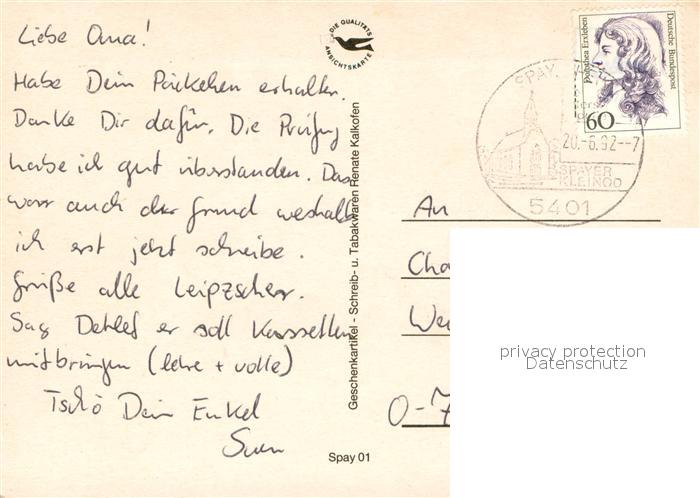 Liebe Oma!
Habe Dein Päckchen erhalten.
Danke Dir dafür. Die Prüfung
habe ich gut überstanden. Das
war auch der Grund weshalb
ich erst jetzt schreibe.
Grüße alle Leipzscher.
Sag Dehlef er soll Kassetten
mitbringen (leere + volle)
Tschö Dein Enkel
Sven
DIE QUALITÄTS
ANSICHTSKARTE
Geschenkartikel - Schreib- u. Tabakwaren Renate Kalkofen
Spay 01
Dorothea Erxleben
Deutsche Bundespost
60
SPAY
20.-6.92--7
SPAYER
KLEINOD
5401
An
Cha
We
O-7
privacy protection
Datenschutz